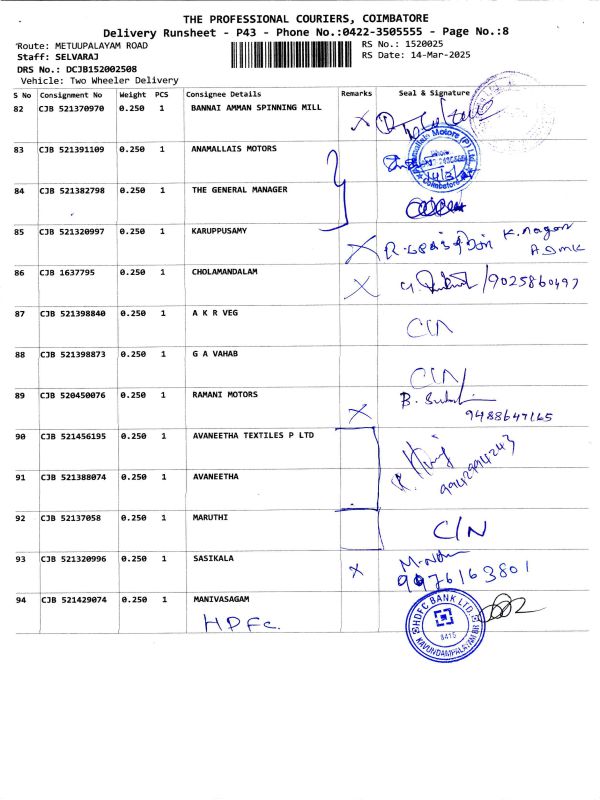 THE PROFESSIONAL COURIERS, COIMBATORE
Delivery Runsheet - P43 - Phone No.:0422-3505555 - Page No.:8
Route: METUUPALAYAM ROAD RS No.: 1520025
Staff: SELVARAJ RS Date: 14-Mar-2025
DRS No.: DCJB152002508
Vehicle: Two Wheeler Delivery
S No Consignment No Weight PCS Consignee Details Remarks Seal & Signature
82 CJB 521370970 0.250 1 BANNAI AMMAN SPINNING MILL
83 CJB 521391109 0.250 1 ANAMALLAIS MOTORS
84 CJB 521382798 0.250 1 THE GENERAL MANAGER
85 CJB 521320997 0.250 1 KARUPPUSAMY
K. nagar
86 CJB 1637795 0.250 1 CHOLAMANDALAM
9025860497
87 CJB 521398840 0.250 1 A K R VEG
C/N
88 CJB 521398873 0.250 1 G A VAHAB
C/N
89 CJB 520450076 0.250 1 RAMANI MOTORS
9488647165
90 CJB 521456195 0.250 1 AVANEETHA TEXTILES P LTD
91 CJB 521388074 0.250 1 AVANEETHA
9942994243
92 CJB 52137058 0.250 1 MARUTHI
C/N
93 CJB 521320996 0.250 1 SASIKALA
94 CJB 521429074 0.250 1 MANIVASAGAM
HDFC.
HDFC BANK LTD.
8415
KAVUNDAMPALAYAM BR